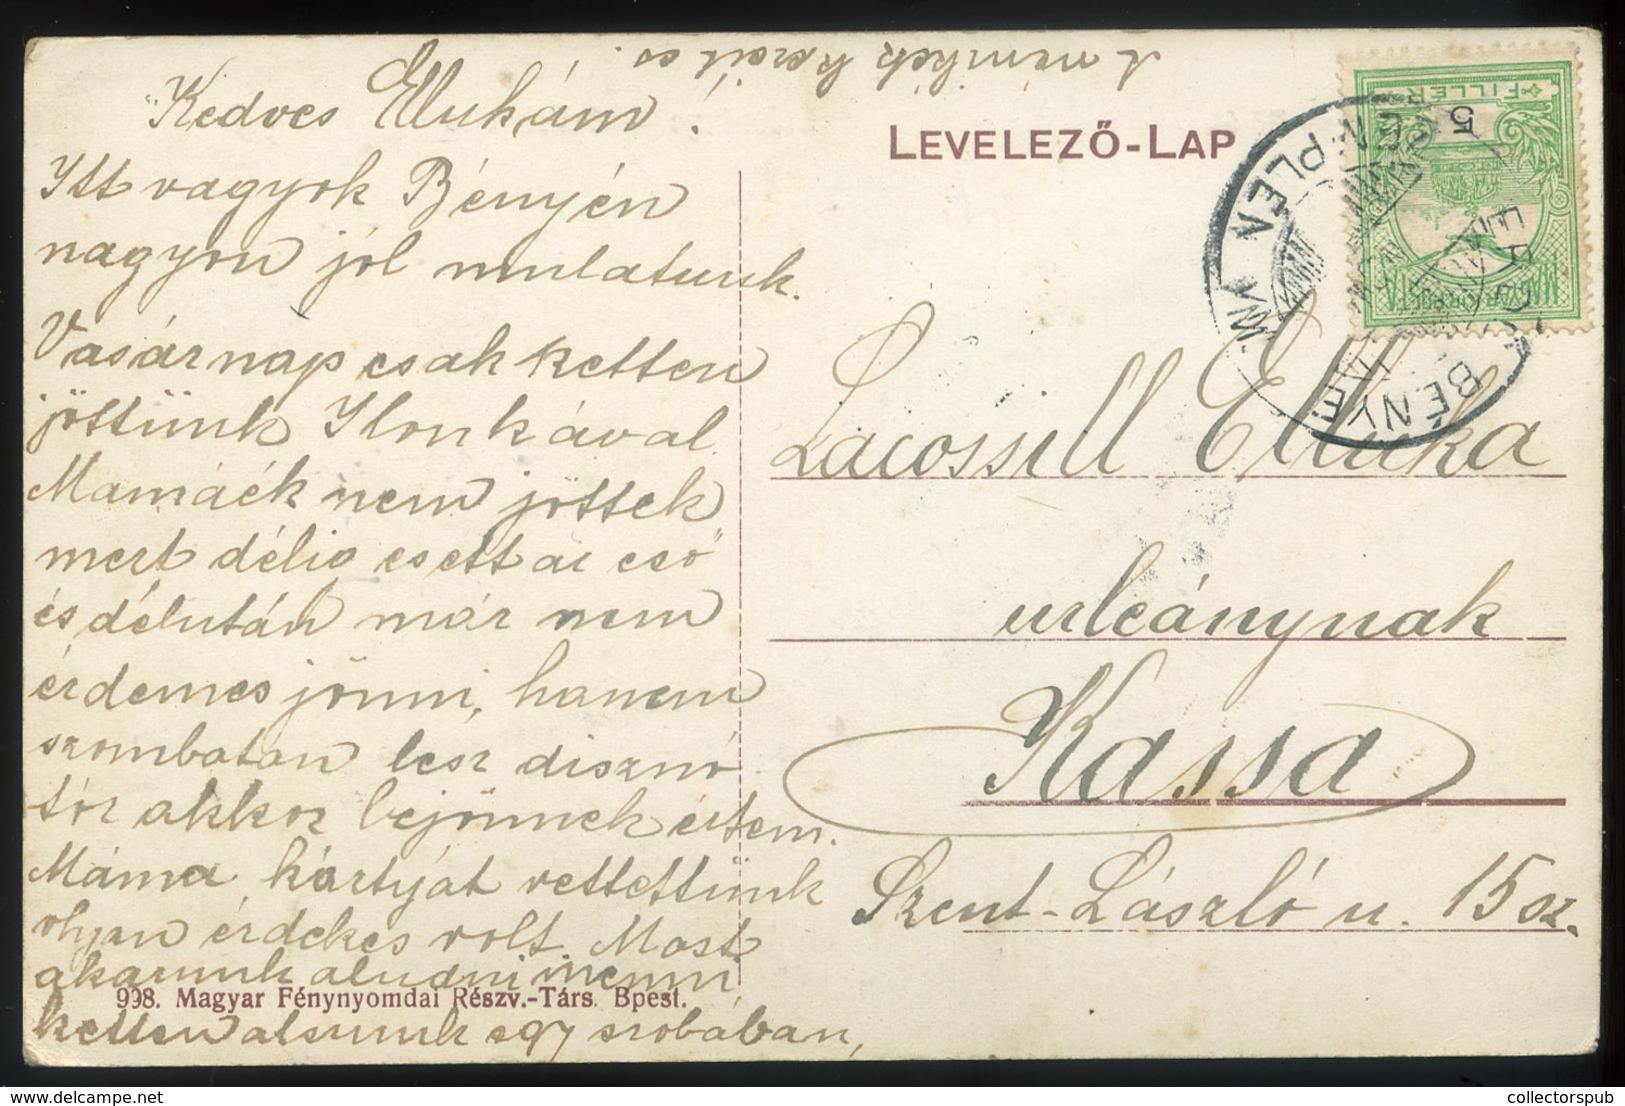 Kedves Ellukám!
Itt vagyok Bényén
nagyon jól mulatunk.
Vasárnap csak ketten
jöttünk Ilonkával
Mamáék nem jöttek
mert délig esett az eső
és délután már nem
érdemes jönni, hanem
szombatan lesz disznó
tór akkor bejönnek értem.
Máma kártyát vettettünk
olyan érdekes volt. Most
akarunk aludni menni
ketten alszunk egy szobában,
998. Magyar Fénynyomdai Részv.-Társ. Bpest.
A nénikék kezeit cs.
LEVELEZŐ-LAP
5
FILLÉR
MAGYAR KIR. POSTA
ZEMPLÉN VM.
BÉNYE
Lacossill Elluka
urleánynak
Kassa
Szent-László u. 15 sz.
collectorspub